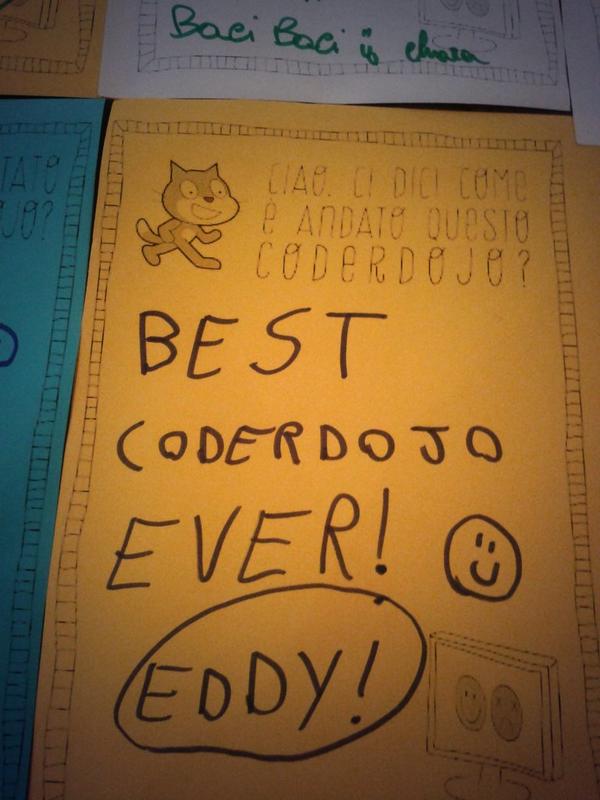 Baci Baci chiara
TATO
OJO?
CIAO, CI DICI COME
È ANDATO QUESTO
CODERDOJO?
BEST
CODERDOJO
EVER!
EDDY!